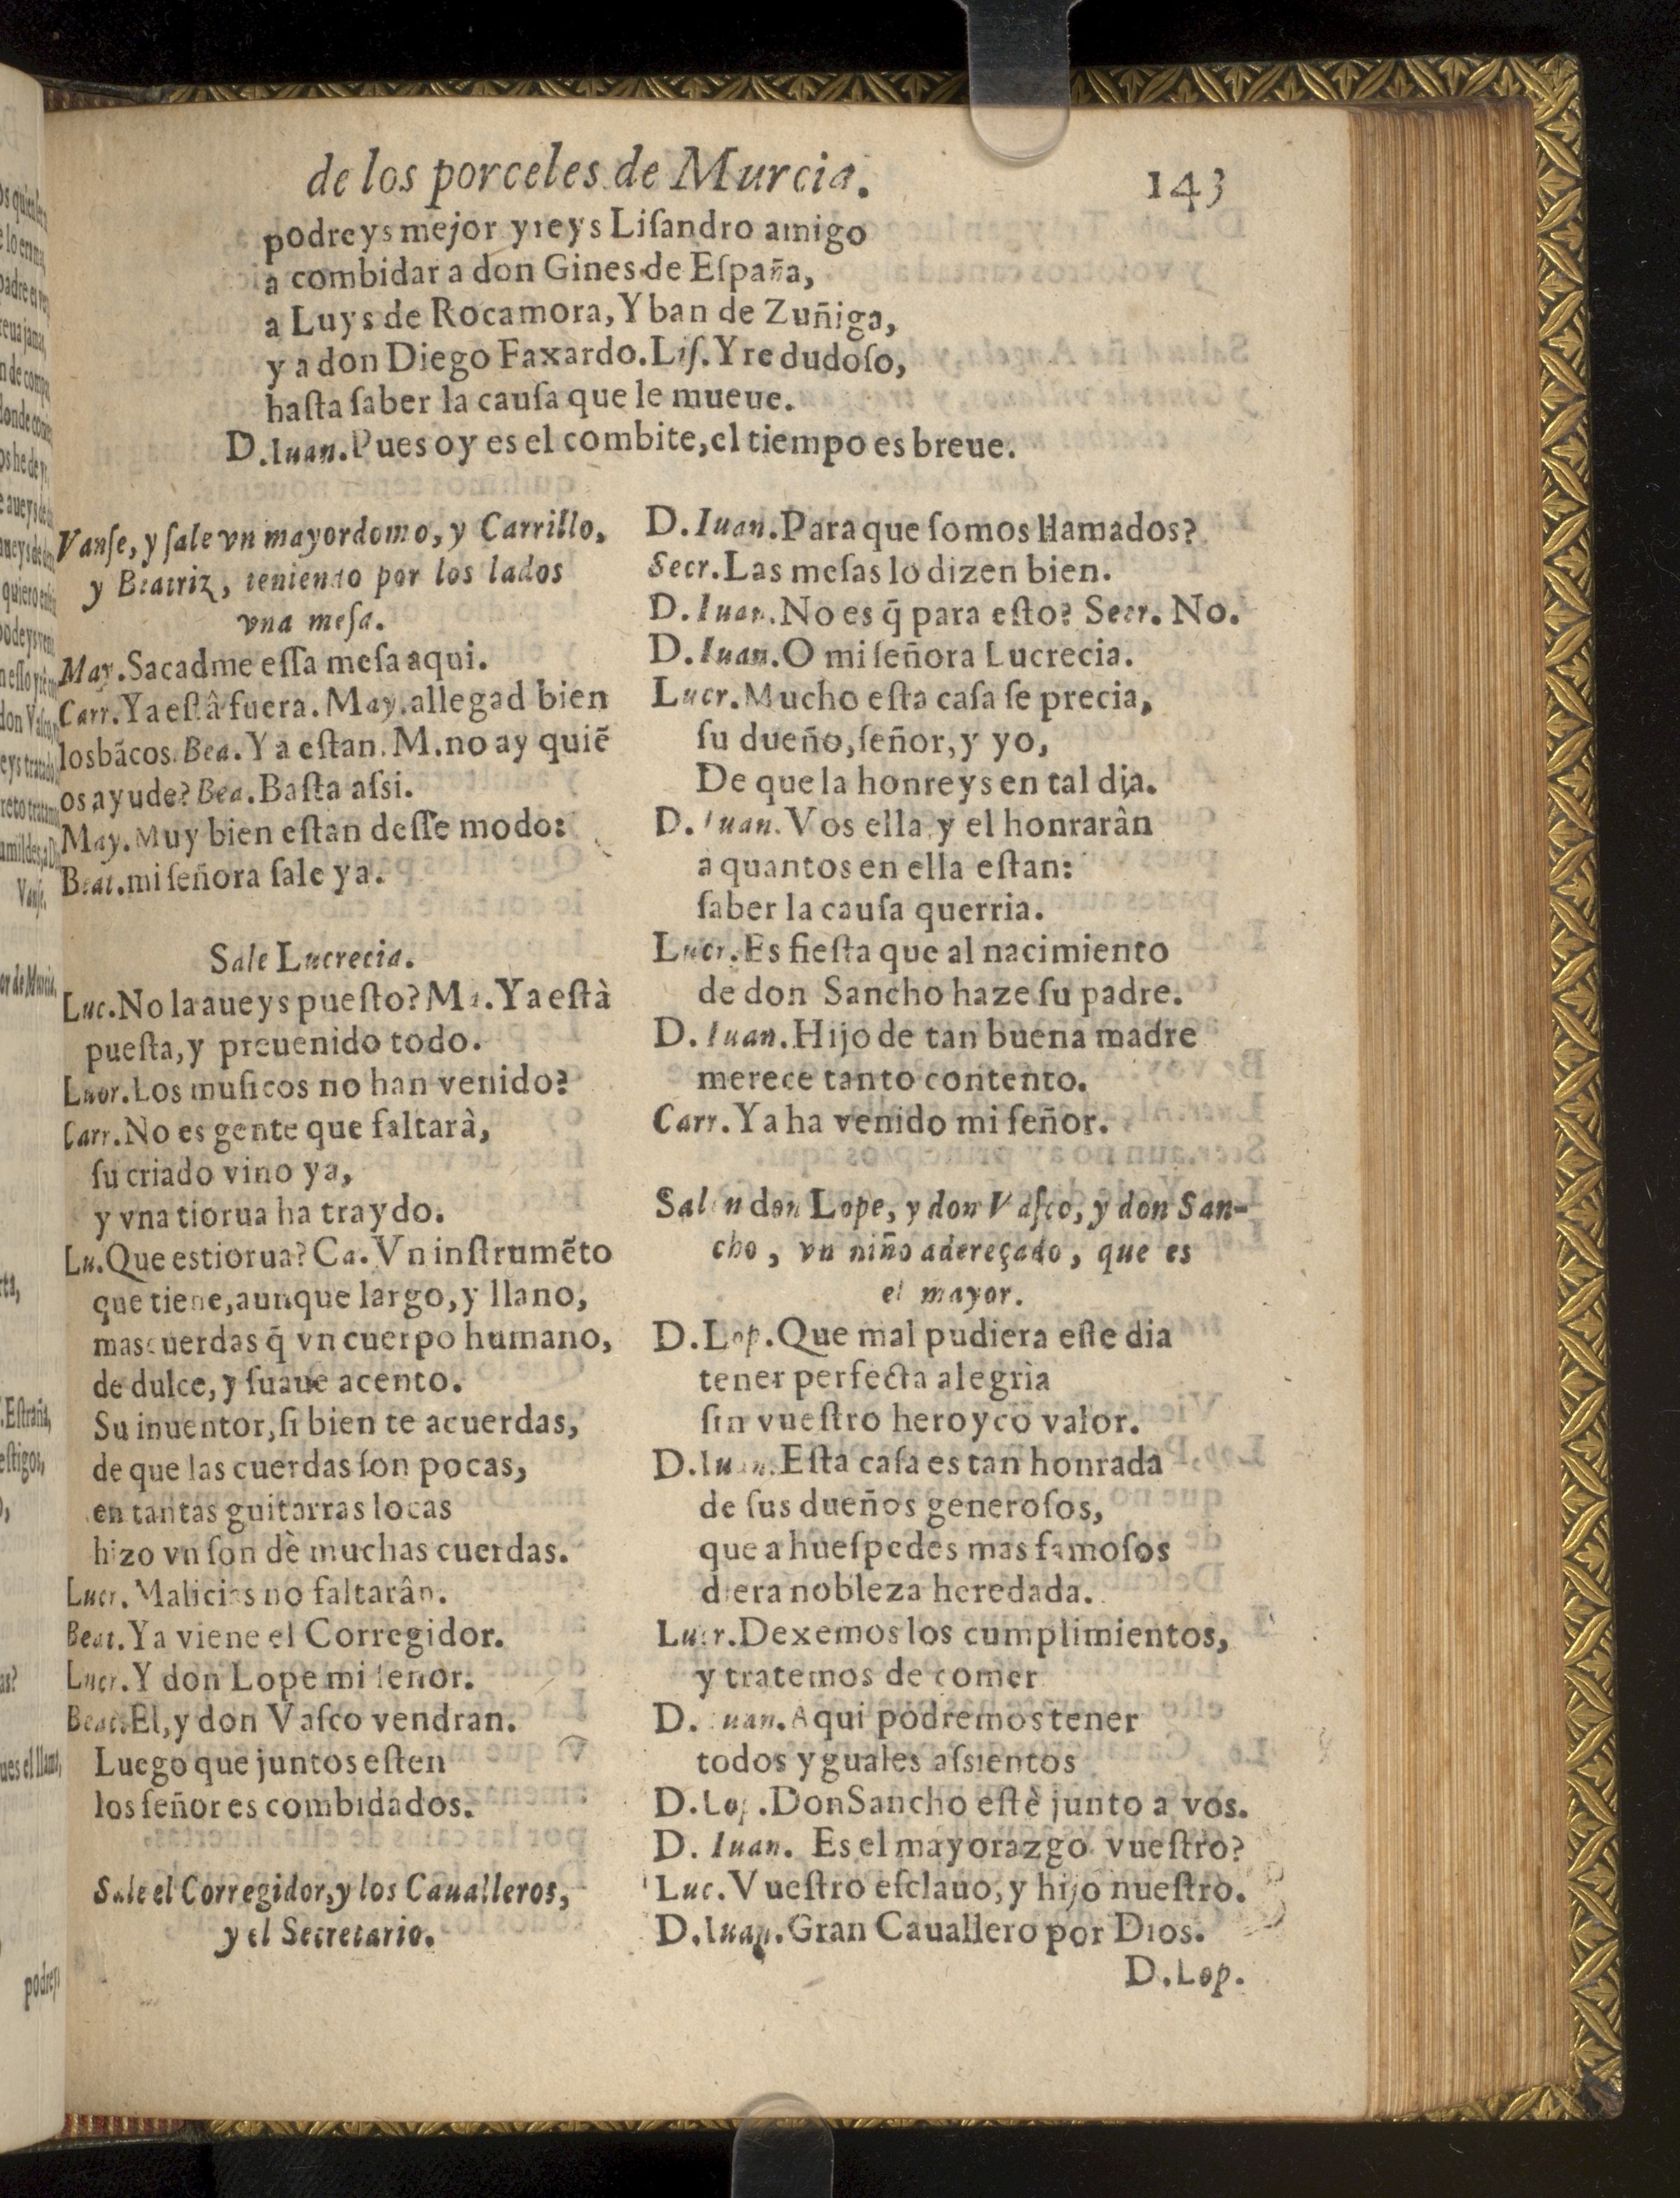 de los porceles de Murcia. 143
podreys mejor yreys Liſandro amigo
a combidar a don Gines de Eſpaña,
a Luys de Rocamora, Yban de Zuñiga,
y a don Diego Faxardo. Liſ. Yre dudoſo,
haſta ſaber la cauſa que le mueue.
D. Iuan. Pues oy es el combite, el tiempo es breue.
Vanſe, y ſale vn mayordomo, y Carrillo,
y Beatriz, teniendo por los lados
vna meſa.
May. Sacadme eſſa meſa aqui.
Carr. Ya eſtâ fuera. May. allegad bien
los bãcos. Bea. Ya eſtan. M. no ay quiẽ
os ayude? Bea. Baſta aſsi.
May. Muy bien eſtan deſſe modo:
Beat. mi ſeñora ſale ya.
Sale Lucrecia.
Luc. No la aueys pueſto? Ma. Ya eſtà
pueſta, y preuenido todo.
Lucr. Los muſicos no han venido?
Carr. No es gente que faltarà,
ſu criado vino ya,
y vna tiorua ha traydo.
Lu. Que es tiorua? Ca. Vn inſtrumẽto
que tiene, aunque largo, y llano,
mas cuerdas q̃ vn cuerpo humano,
de dulce, y ſuaue acento.
Su inuentor, ſi bien te acuerdas,
de que las cuerdas ſon pocas,
en tantas guitarras locas
hizo vn ſon dè muchas cuerdas.
Lucr. Malicias no faltarân.
Beat. Ya viene el Corregidor.
Lucr. Y don Lope mi ſeñor.
Beat. El, y don Vaſco vendran.
Luego que juntos eſten
los ſeñores combidados.
Sale el Corregidor, y los Caualleros,
y el Secretario.
D. Iuan. Para que ſomos llamados?
Secr. Las meſas lo dizen bien.
D. Iuan. No es q̃ para eſto? Secr. No.
D. Iuan. O mi ſeñora Lucrecia.
Lucr. Mucho eſta caſa ſe precia,
ſu dueño, ſeñor, y yo,
De que la honreys en tal dia.
D. Iuan. Vos ella, y el honrarân
a quantos en ella eſtan:
ſaber la cauſa querria.
Lucr. Es fieſta que al nacimiento
de don Sancho haze ſu padre.
D. Iuan. Hijo de tan buena madre
merece tanto contento.
Carr. Ya ha venido mi ſeñor.
Salen don Lope, y don Vaſco, y don San-
cho, vn niño adereçado, que es
el mayor.
D. Lop. Que mal pudiera eſte dia
tener perfecta alegria
ſin vueſtro heroyco valor.
D. Iuan. Eſta caſa es tan honrada
de ſus dueños generoſos,
que a hueſpedes mas famoſos
diera nobleza heredada.
Lucr. Dexemos los cumplimientos,
y tratemos de comer
D. Iuan. Aqui podremos tener
todos yguales aſsientos
D. Lop. Don Sancho eſtè junto a vos.
D. Iuan. Es el mayorazgo vueſtro?
Luc. Vueſtro eſclauo, y hijo nueſtro.
D. Iuan. Gran Cauallero por Dios.
D. Lop.